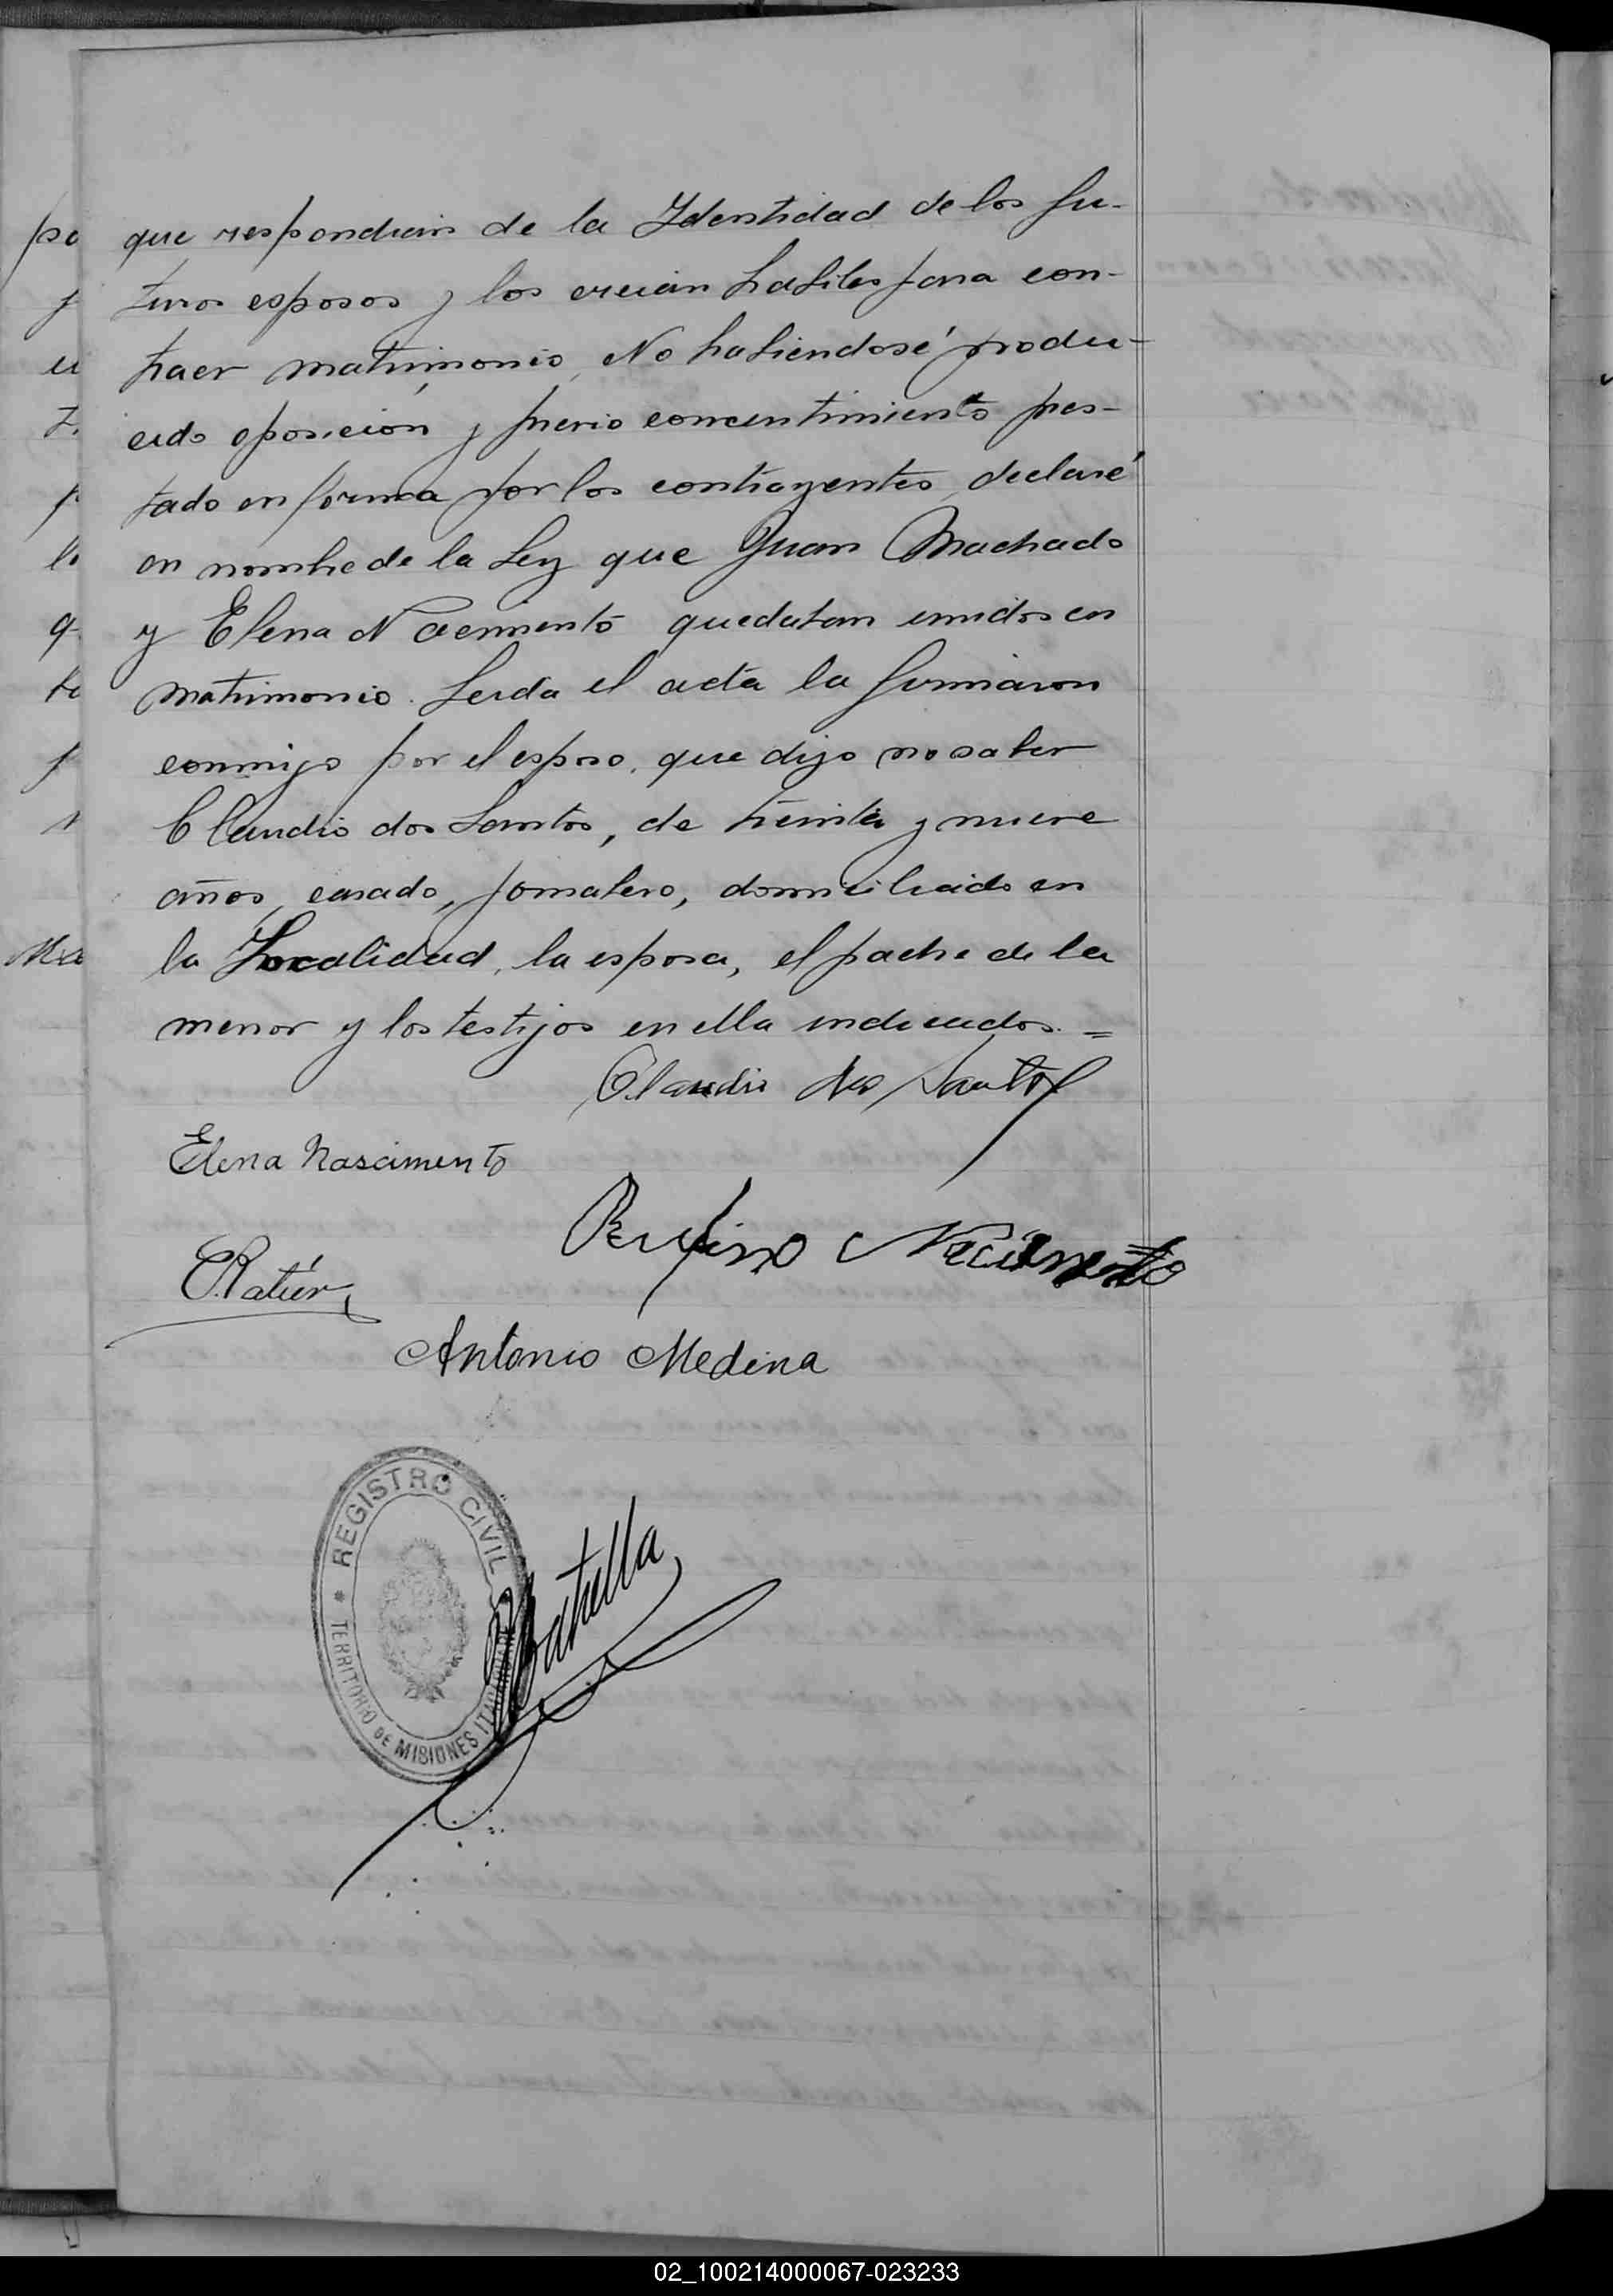 que respondian de la Identidad de los fu-
turos esposos y los creian habiles para con-
traer matrimonio, No habiendosé produ-
cido oposición y previo concentimiento pres-
tado en forma por los contrayentes, declaré
en nombre de la Ley que Juan Machado
y Elena Nacimento quedaban unidos en
matrimonio. Leida el acta la firmaron
conmigo por el esposo, que dijo no saber
Claudio dos Santos, de treinta y nueve
años, casado, jornalero, domiciliado en
la Localidad, la esposa, el padre de la
menor y los testijos en ella indicados. =
Claudio dos Santos
Elena Nascimento
Rufino Nacimento
C. Ratier
Antonio Medina
REGISTRO CIVIL
TERRITORIO DE MISIONES
02_100214000067-023233